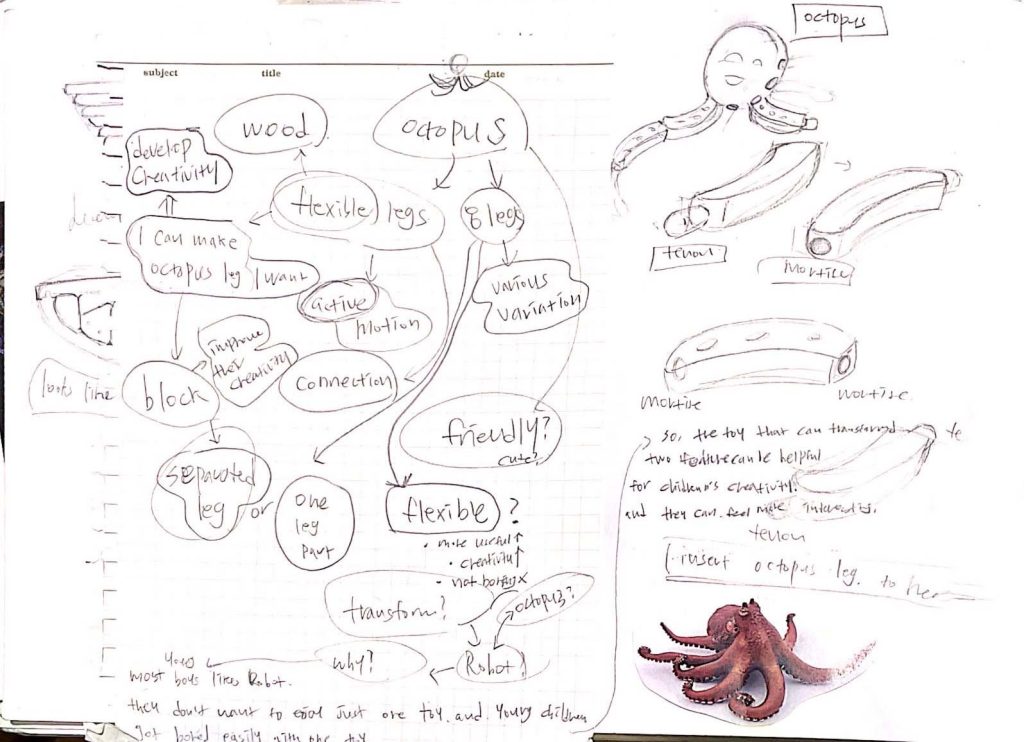 subject title date
octopus
wood
octopus
develop
Creativity
flexible legs
8 legs
I can make
octopus leg I want
active
motion
various
variation
tenon
mortise
improve
their
creativity
connection
looks like
block
mortise
mortise
friendly?
cute?
separated
leg
or
one
leg
part
flexible ?
• more useful↑
• creativity↑
• not boring
so, the toy that can
two
for children's creativity.
and they can feel more
tenon
insert octopus leg. to here
transform?
octopus?
why?
Robot?
Young
most boys likes Robot.
they don't want to just one toy and young children
got bored easily with one toy